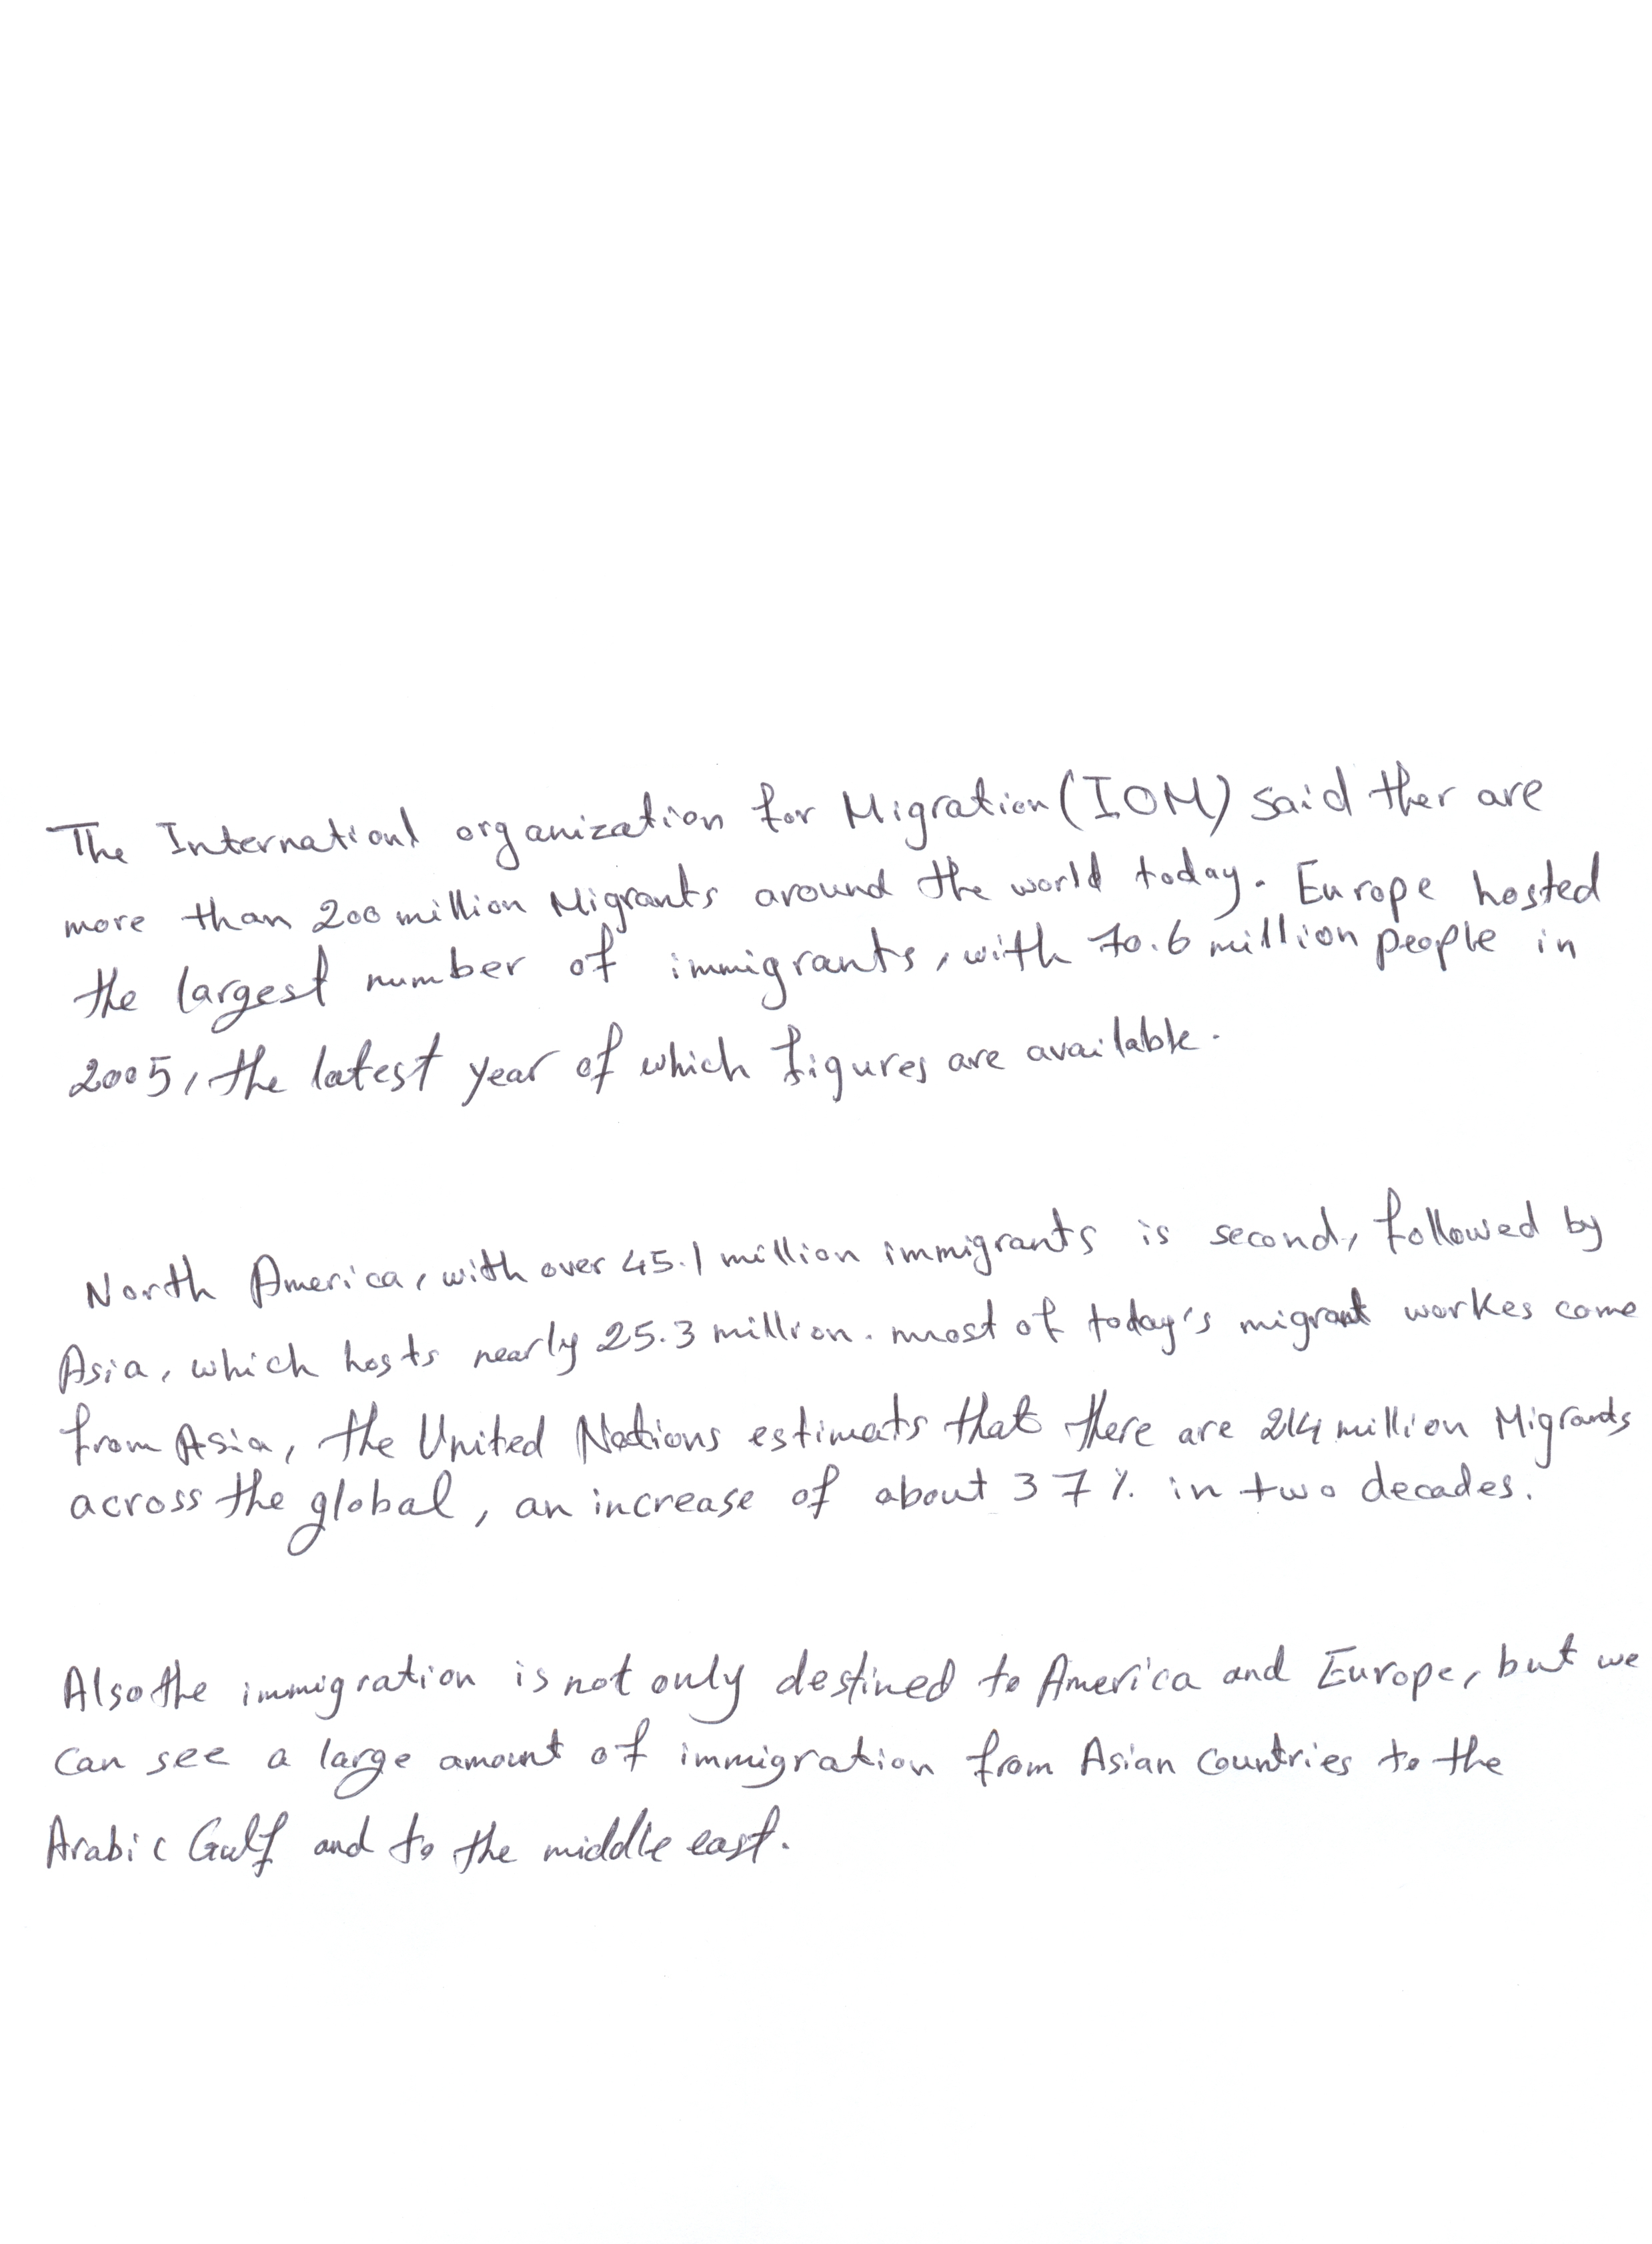 The Internationl organization for Migration (IOM) said ther are
more than 200 million Migrants around the world today. Europe hosted
the largest number of immigrants, with 70.6 million people in
2005, the latest year of which figures are available.
North America, with over 45.1 million immigrants is second, followed by
Asia, which hosts nearly 25.3 million. most of today's migrant workes come
from Asia, the United Nations estimats that there are 214 million Migrants
across the global, an increase of about 37% in two decades.
Also the immigration is not only destined to America and Europe, but we
can see a large amount of immigration from Asian countries to the
Arabic Gulf and to the middle east.